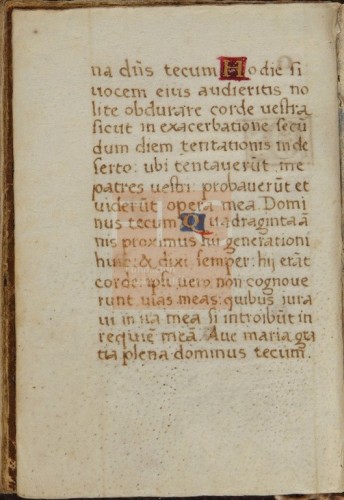 na dn̄s tecum Hodie si
uocem eius audieritis no
lite obdurare corde vestra
sicut in exacerbatione secū
dum diem tentationis in de
serto: ubi tentauerūt me
patres vestri: probauerūt et
viderūt opera mea. Domi
nus tecum. Quadraginta ā
nis proximus fui generationi
huic: & dixi semper: hij erāt
corde: ipsi vero non cognoue
runt uias meas: quibus iura
ui in ira mea si introibūt in
requiē meā. Aue maria gra
tia plena dominus tecum.